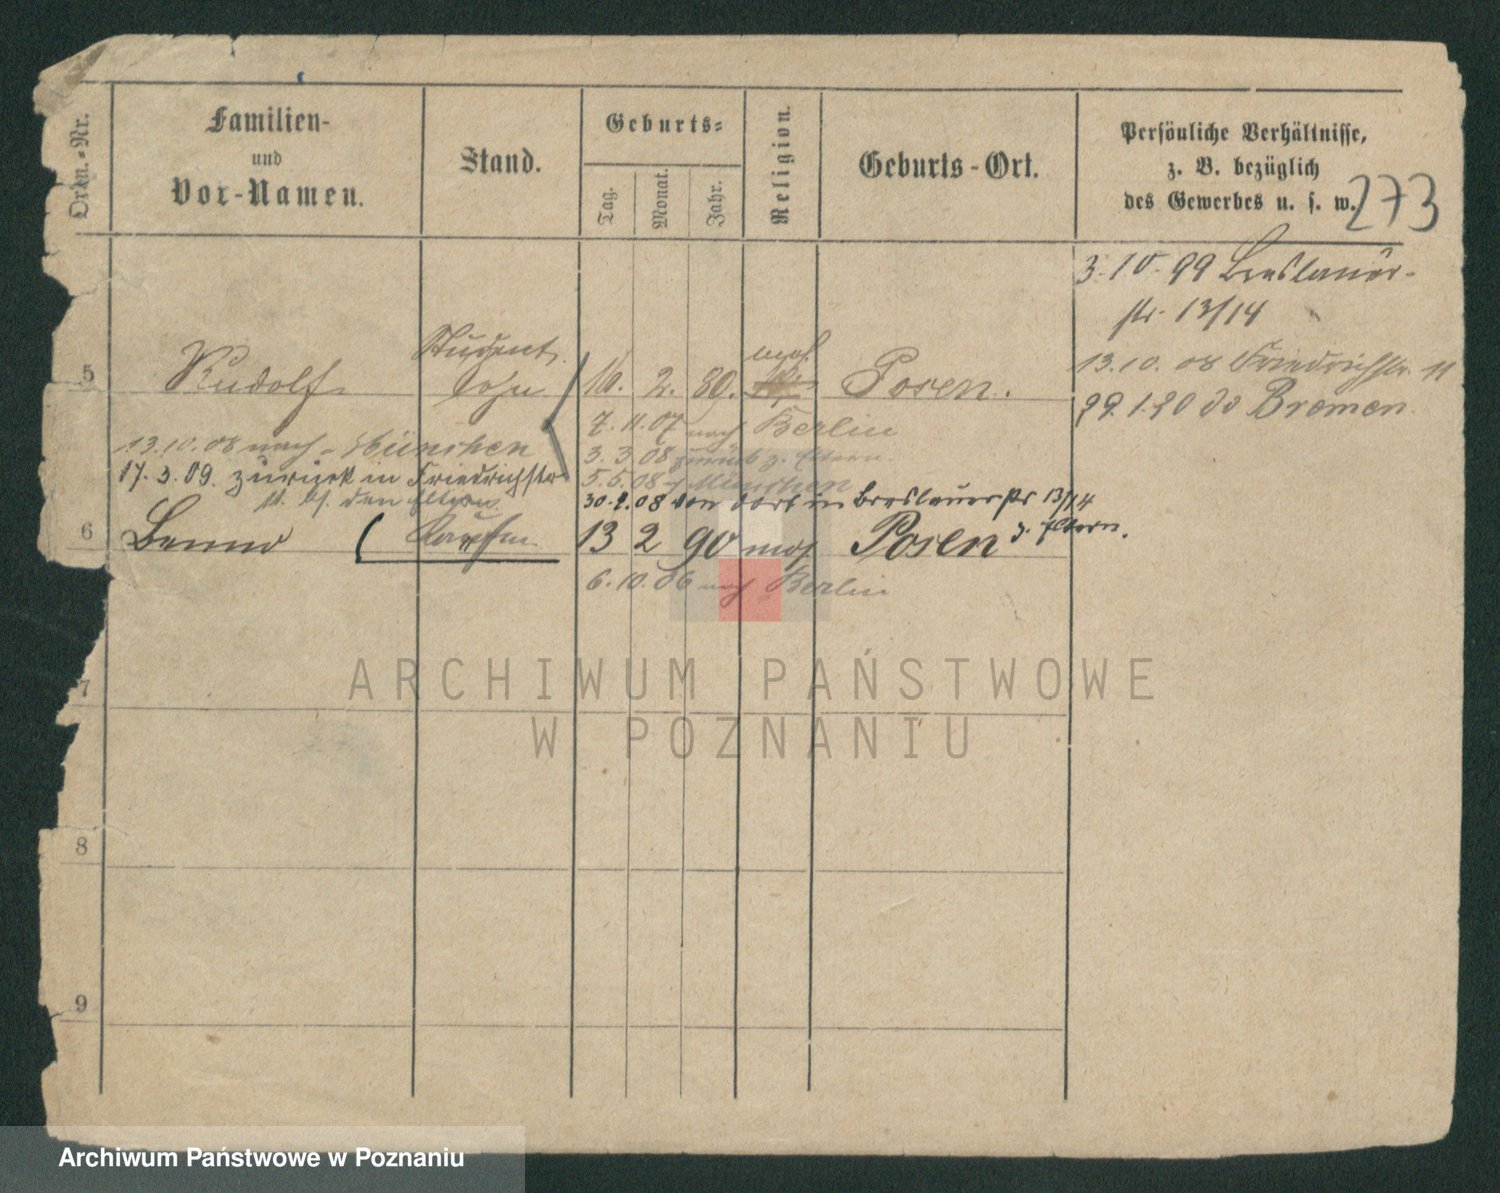 Ordn.-Nr.
Familien-
und
Vor-Namen.
Stand.
Geburts-
Tag.
Monat.
Jahr.
Religion.
Geburts-Ort.
Persönliche Verhältnisse,
z. B. bezüglich
des Gewerbes u. s. w.
273
3.10.99 Breslauer-
str. 13/14
Student
5 Rudolf Sohn 10. 2. 89. mos Posen.
13.10.08 Friedrichstr. 11
29.1.20 Bremen
7.11.07 nach Berlin
13.10.08 nach München
3.3.08 zurück z. Eltern
17.3.09. zurück in Friedrichstr
5.5.08 München
11 den Eltern
30.9.08 von dort in Breslauerstr 13/14
z. Eltern.
6 Benno Kaufm 13 2 90 mos Posen
6.10.06 nach Berlin
7
8
9
ARCHIWUM PAŃSTWOWE
W POZNANIU
Archiwum Państwowe w Poznaniu